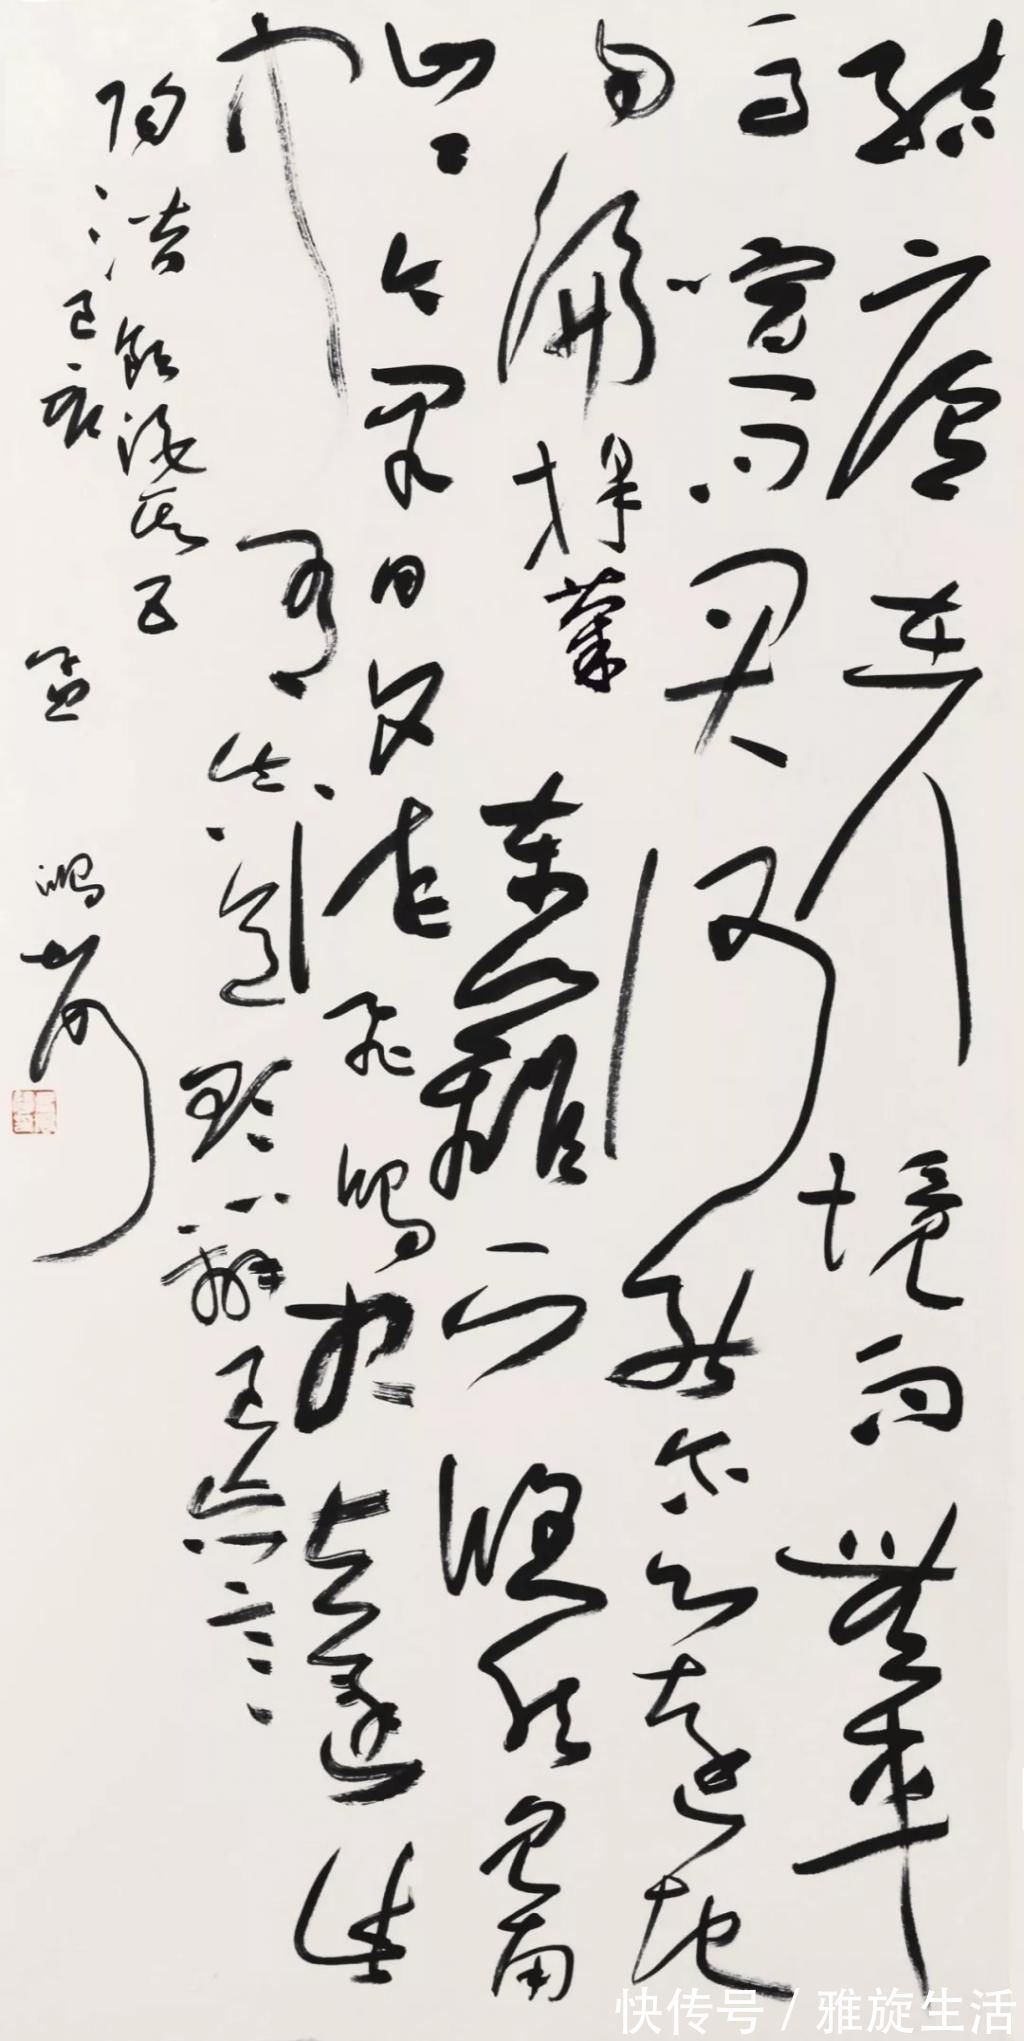 結廬在人境而無車
馬喧問君何能尔心遠地
自偏採菊東籬下悠然見南
山山氣日夕佳飛鳥相与還此
中有真意欲辨已忘言
陶潛飲酒其五
己亥 孟鴻声
快传号 / 雅旋生活